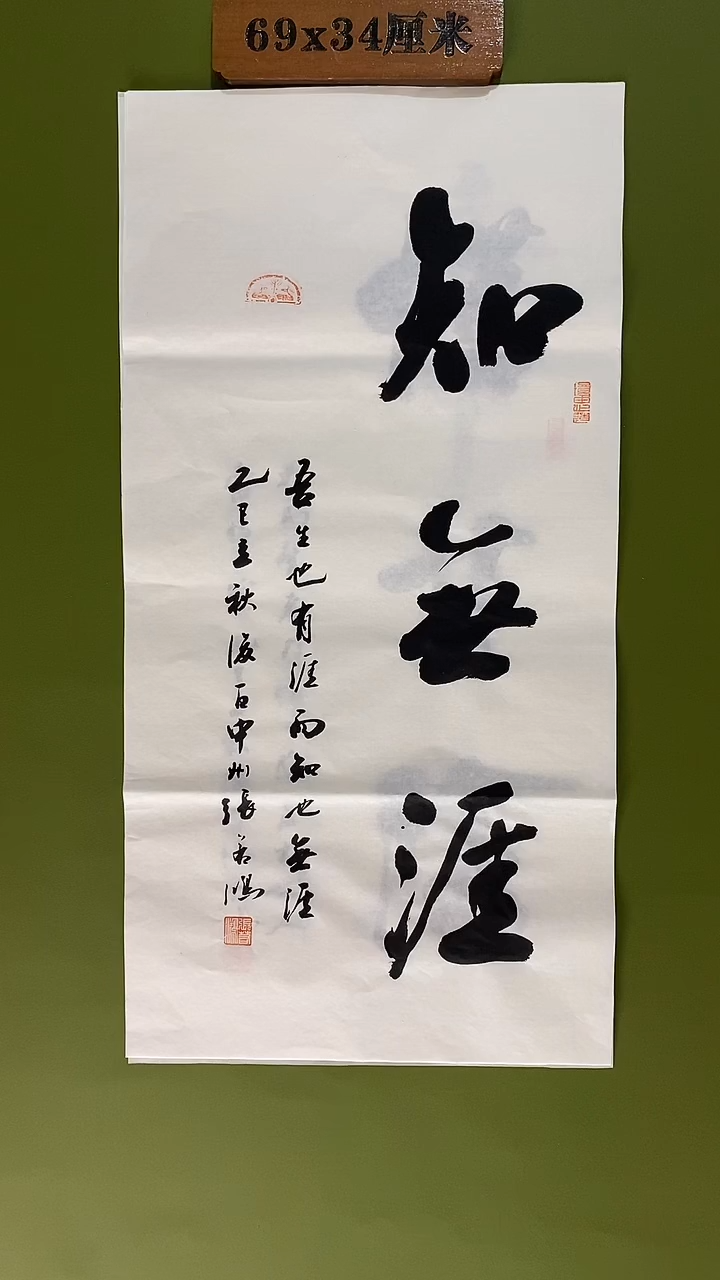 69x34厘米
知無涯
吾生也有涯而知也無涯
乙巳立秋後百中州張若鴻